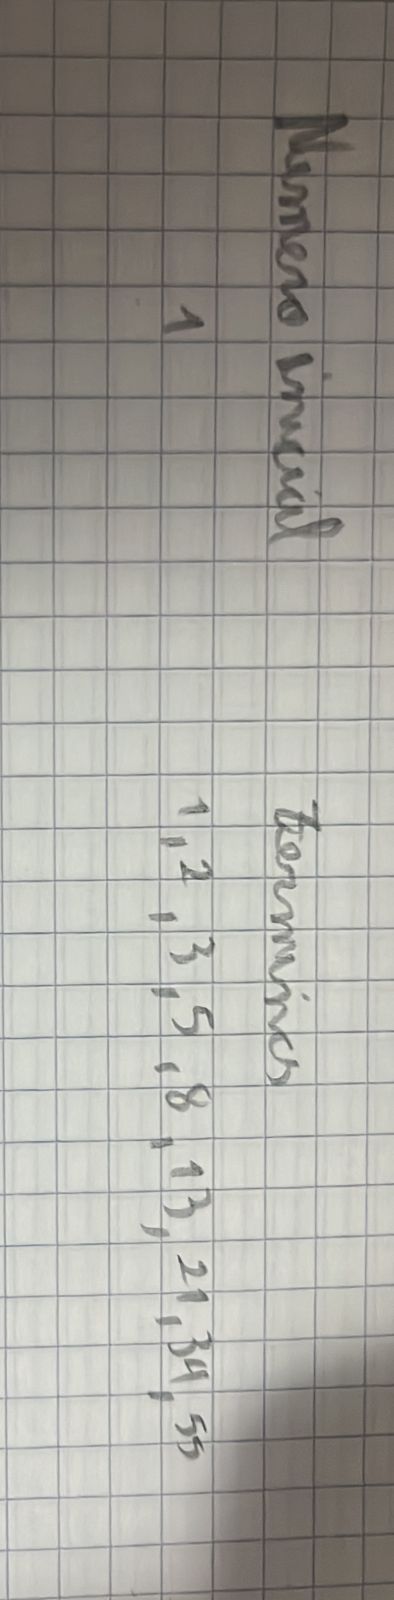 Numero inicial terminos
1 1, 2, 3, 5, 8, 13, 21, 34, 55